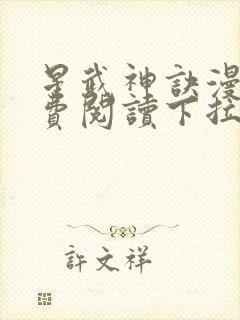 星武神訣漫
費閱讀下拉
許文祥